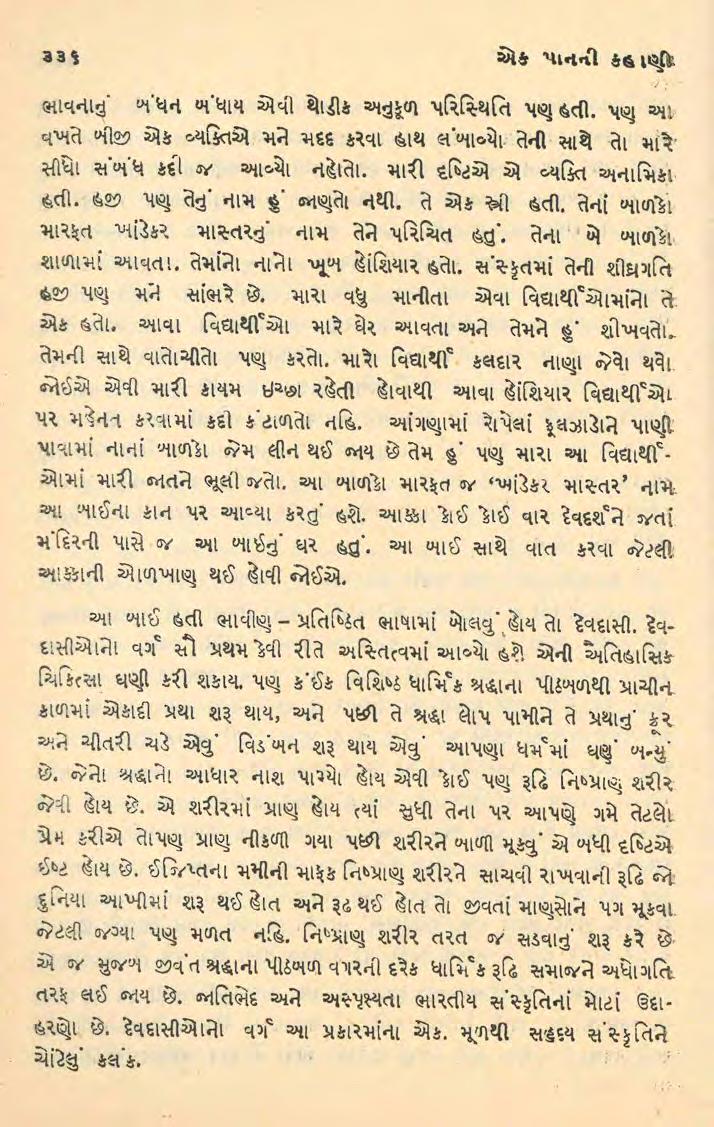 ૩૩૬ એક પાનની કહાણી
ભાવનાનું બંધન બંધાય એવી થોડીક અનુકૂળ પરિસ્થિતિ પણ હતી. પણ આ
વખતે બીજી એક વ્યક્તિએ મને મદદ કરવા હાથ લંબાવ્યો. તેની સાથે તો મારે
સીધો સંબંધ કદી જ આવ્યો નહોતો. મારી દૃષ્ટિએ એ વ્યક્તિ અનામિકા
હતી. હજી પણ તેનું નામ હું જાણતો નથી. તે એક સ્ત્રી હતી. તેનાં બાળકો
મારફત ખાંડેકર માસ્તરનું નામ તેને પરિચિત હતું. તેના બે બાળકો
શાળામાં આવતા. તેમાંનો નાનો ખૂબ હોંશિયાર હતો. સંસ્કૃતમાં તેની શીઘ્રગતિ
હજી પણ મને સાંભરે છે. મારા વધુ માનીતા એવા વિદ્યાર્થીઓમાંનો તે
એક હતો. આવા વિદ્યાર્થીઓ મારે ઘેર આવતા અને તેમને હું શીખવતો.
તેમની સાથે વાતોચીતો પણ કરતો. મારો વિદ્યાર્થી કલદાર નાણા જેવો થવો
જોઈએ એવી મારી કાયમ ઇચ્છા રહેતી હોવાથી આવા હોંશિયાર વિદ્યાર્થીઓ
પર મહેનત કરવામાં કદી કંટાળતો નહિ. આંગણામાં રોપેલાં ફૂલઝાડોને પાણી
પાવામાં નાનાં બાળકો જેમ લીન થઈ જાય છે તેમ હું પણ મારા આ વિદ્યાર્થી-
ઓમાં મારી જાતને ભૂલી જતો. આ બાળકો મારફત જ ‘ખાંડેકર માસ્તર’ નામ
આ બાઈના કાન પર આવ્યા કરતું હશે. આક્કા કોઈ કોઈ વાર દેવદર્શને જતાં
મંદિરની પાસે જ આ બાઈનું ઘર હતું. આ બાઈ સાથે વાત કરવા જેટલી
આક્કાની ઓળખાણ થઈ હોવી જોઈએ.
આ બાઈ હતી ભાવીણ – પ્રતિષ્ઠિત ભાષામાં બોલવું હોય તો દેવદાસી. દેવ-
દાસીઓનો વર્ગ સૌ પ્રથમ કેવી રીતે અસ્તિત્વમાં આવ્યો હશે એની ઐતિહાસિક
ચિકિત્સા ઘણી કરી શકાય. પણ કંઈક વિશિષ્ઠ ધાર્મિક શ્રદ્ધાના પીઠબળથી પ્રાચીન
કાળમાં એકાદી પ્રથા શરૂ થાય, અને પછી તે શ્રદ્ધા લોપ પામીને તે પ્રથાનું ક્રૂર
અને ચીતરી ચડે એવું વિડંબન શરૂ થાય એવું આપણા ધર્મમાં ઘણું બન્યું
છે. જેનો શ્રદ્ધાનો આધાર નાશ પામ્યો હોય એવી કોઈ પણ રૂઢિ નિષ્પ્રાણ શરીર
જેવી હોય છે. એ શરીરમાં પ્રાણ હોય ત્યાં સુધી તેના પર આપણે ગમે તેટલો
પ્રેમ કરીએ તોપણ પ્રાણ નીકળી ગયા પછી શરીરને બાળી મૂકવું એ બધી દૃષ્ટિએ
ઈષ્ટ હોય છે. ઈજિપ્તના મમીની માફક નિષ્પ્રાણ શરીરને સાચવી રાખવાની રૂઢિ જો
દુનિયા આખીમાં શરૂ થઈ હોત અને રૂઢ થઈ હોત તો જીવતાં માણસોને પગ મૂકવા
જેટલી જગ્યા પણ મળત નહિ. નિષ્પ્રાણ શરીર તરત જ સડવાનું શરૂ કરે છે
એ જ મુજબ જીવંત શ્રદ્ધાના પીઠબળ વગરની દરેક ધાર્મિક રૂઢિ સમાજને અધોગતિ
તરફ લઈ જાય છે. જાતિભેદ અને અસ્પૃશ્યતા ભારતીય સંસ્કૃતિનાં મોટાં ઉદા-
હરણો છે. દેવદાસીઓનો વર્ગ આ પ્રકારમાંના એક. મૂળથી સહૃદય સંસ્કૃતિને
ચોંટેલું કલંક.